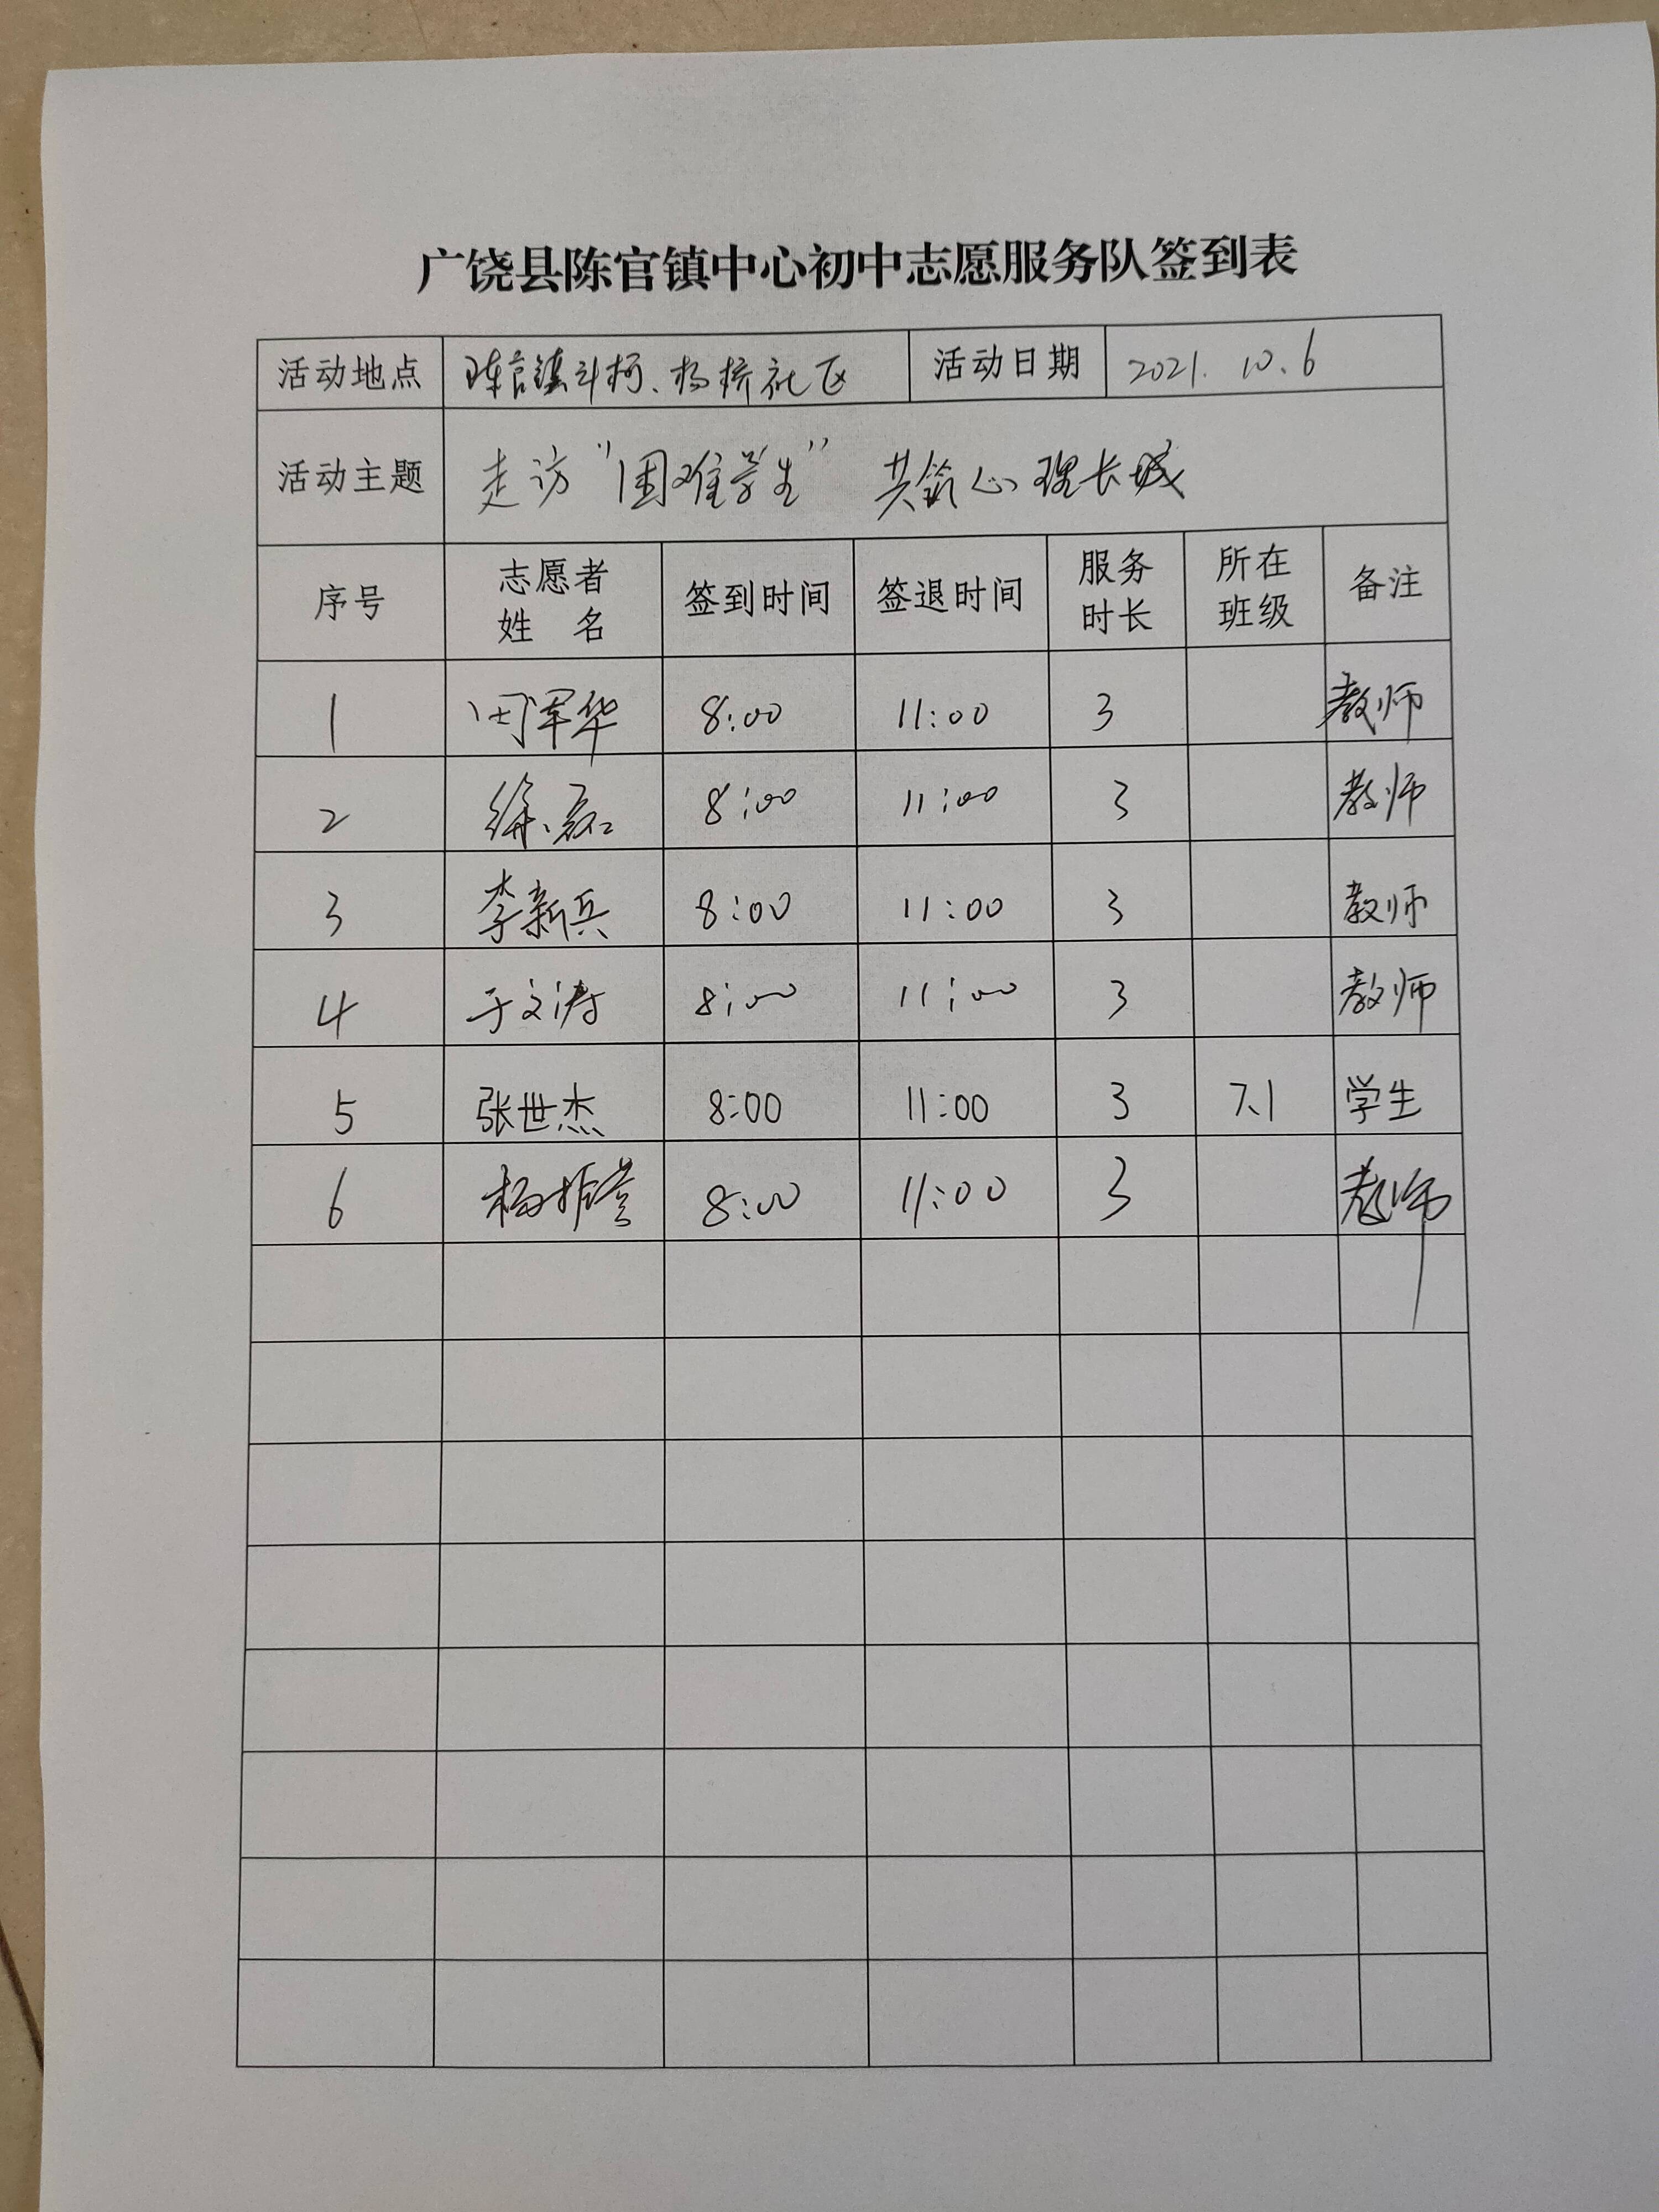 广饶县陈官镇中心初中志愿服务队签到表
活动地点 陈官镇斗柯、杨桥社区 活动日期 2021.10.6
活动主题 走访“困难学生” 共筑心理长城
序号 志愿者姓 名 签到时间 签退时间 服务时长 所在班级 备注
1 田军华 8:00 11:00 3 教师
2 徐磊 8:00 11:00 3 教师
3 李新兵 8:00 11:00 3 教师
4 于文涛 8:00 11:00 3 教师
5 张世杰 8:00 11:00 3 7.1 学生
6 杨振 8:00 11:00 3 教师